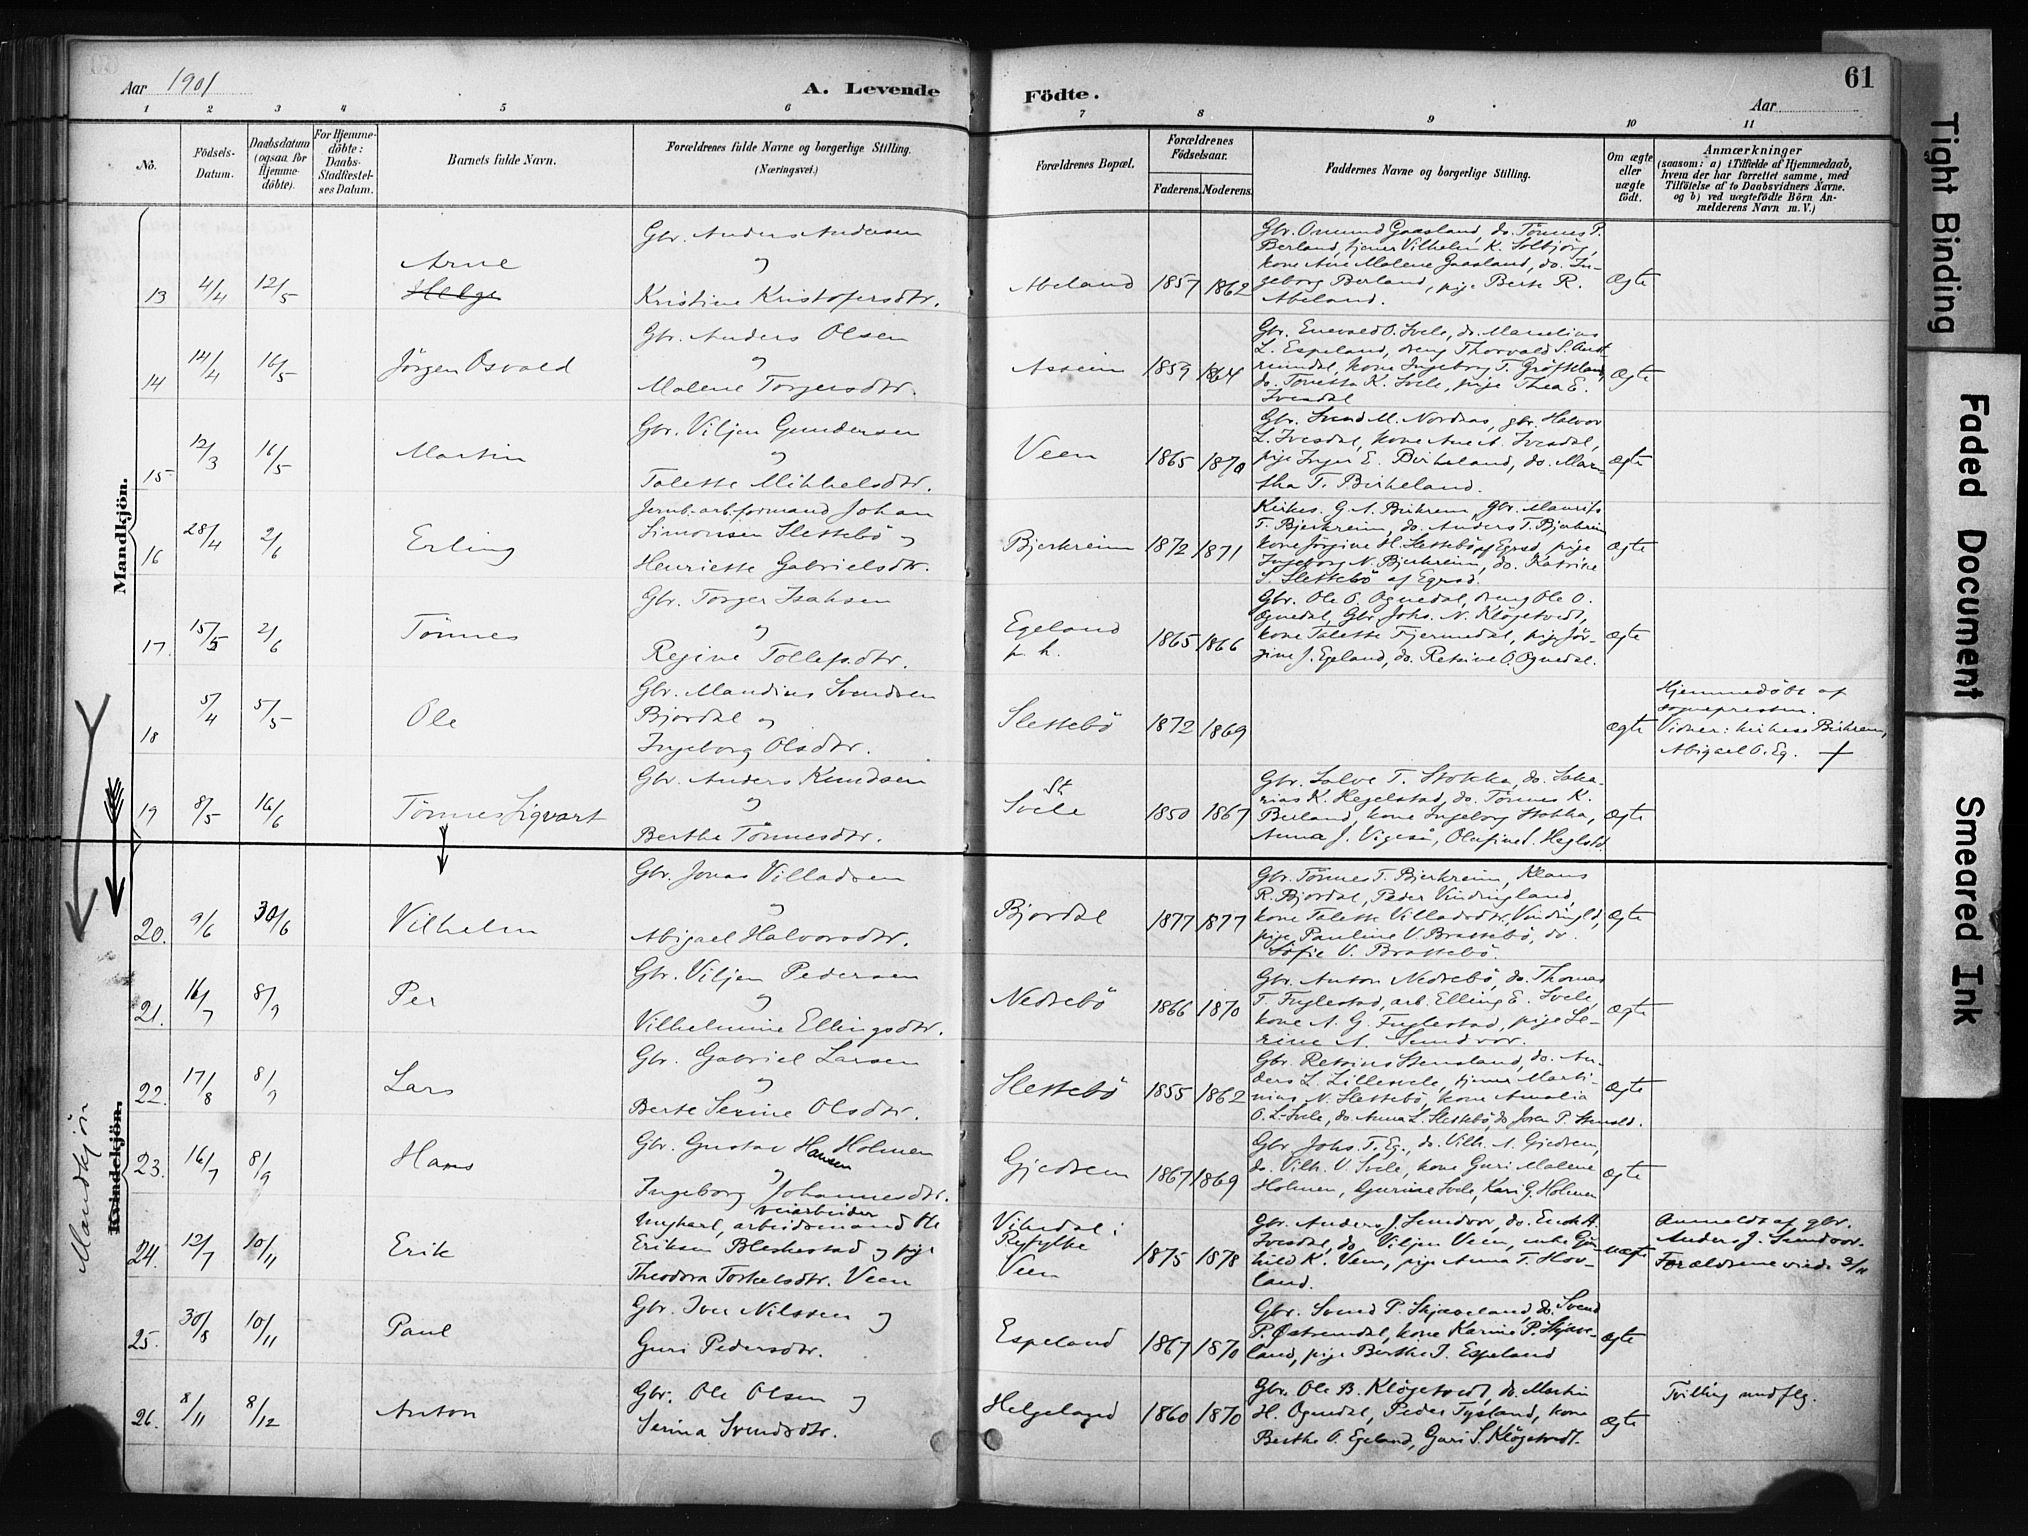 Aar 1901
A. Levende
Födte.
Aar
61
1 2 3 4 5 6 7 8 9 10 11
Nö.
Födsels-Datum.
Daabsdatum (ogsaa for Hjemmedöbte).
For Hjemmedöbte: Daabs-Stadfæstelses Datum.
Barnets fulde Navn.
Forældrenes fulde Navne og borgerlige Stilling. (Næringsvei.)
Forældrenes Bopæl.
Forældrenes Födselsaar.
Faderens. Moderens.
Faddernes Navne og borgerlige Stilling.
Om ægte eller uægte födt.
Anmærkninger
(saasom: a) i Tilfælde af Hjemmedaab, hvem der har forrettet samme, med Tilföielse af to Daabsvidners Navne. og b) ved uægtefödte Börn Anmelderens Navn m. V.)
Mandkjön.
13 4/4 12/5 Arne Helge
Gbr. Anders Andersen
og
Kristine Kristofersdtr.
Abeland 1857 1862
Gbr. Omund Gaasland, do. Tönnes P.
Berland, tjener Vilhelm K. Solbjörg,
kone Ane Malene Gaasland, do. In-
geborg Berland, pige Berte R.
Abeland.
Ægte
14 14/4 16/5 Jörgen Osvald
Gbr. Anders Olsen
og
Malene Torgersdtr.
Asseim 1859 1864
Gbr. Enevald O. Svele, do. Marselius
L. Espeland, dreng Thorvald S. Aust-
reimdal, kone Ingeborg T. Gröfteland,
do. Tonetta K. Svele, pige Thea E.
Ivesdal
Ægte
15 12/3 16/5 Martin
Gbr. Viljen Gundersen
og
Talette Mikkelsdtr.
Veen 1865 1870
Gbr. Svend M. Nordaas, gbr. Halvor
L. Ivesdal, kone Ane A. Ivesdal,
pige Inger E. Birkeland, do. Mar-
tha T. Birkeland.
ægte
16 28/4 2/6 Erling
Jernb. arb. formand Johan
Simonsen Slettebö og
Henriette Gabrielsdtr.
Bjerkreim 1872 1871
Kirkes. G. A. Birkrem, Gbr. Maurits
T. Bjerkreim, do. Anders T. Bjerkreim
kone Jörgine H. Slettebö af Egrsd, pige
Ingeborg N. Bjerkreim, do. Katrine
S. Slettebö af Egrsd.
Ægte
17 15/5 2/6 Tönnes
Gbr. Torger Isaksen
og
Regine Tollefsdtr.
Egeland
p. h.
1865 1866
Gbr. Ole O. Ognedal, dreng Ole O.
Ognedal, Gbr. Johs. N. Klögetvedt,
kone Talette Fjermedal, pige Jör-
gine J. Egeland, do. Retsine O. Ognedal.
Ægte
18 5/4 5/5 Ole
Gbr. Mandius Svendsen
Bjordal og
Ingeborg Olsdtr.
Slettebö 1872 1869
ægte
Hjemmedöbt af
sognepresten.
Vidner: kirkes. Birkrem,
Abigael O. Eg. +
19 8/5 16/6 Tönnes Sigvart
Gbr. Anders Knudsen
og
Berthe Tönnesdtr.
St.
Svele 1850 1867
Gbr. Salve T. Stokka, do. Saka-
rias K. Hegelstad, do. Tönnes K.
Berland, kone Ingeborg Stokka,
Anna J. Vigeså, Olufine S. Heglstd.
Ægte
20. 9/6 30/6 Vilhelm
Gbr. Jonas Villadsen
og
Abigael Halvorsdtr.
Bjordal 1877 1877
Gbr. Tönnes T. Bjerkreim, Klaus
R. Bjordal, Peder Vindingland,
kone Talette Villadsdtr. Vindingld,
pige Pauline V. Brattebö, do.
Sofie V. Brattebö.
Ægte
21. 16/7 8/9 Per
Gbr. Viljen Pedersen
og
Vilhelmine Ellingsdtr.
Nedrebö 1866 1870
Gbr. Anton Nedrebö, do. Thomas
T. Fuglestad, arb. Elling E. Svele,
kone A. G. Fuglestad, pige Se-
rine A. Sundvor.
Ægte
22. 17/8 8/9 Lars
Gbr. Gabriel Larsen
og
Berte Serine Olsdtr.
Slettebö 1855 1862
Gbr. Retsius Stensland, do. An-
ders L. Lillesvele, tjener Marti-
nius N. Slettebö, kone Amalia
O. L.-Svele, do. Anna L. Slettebö, do Joren P. Stensld.
Ægte
Mandkjön
Kvindekjön.
23. 16/7 8/9 Hans
Gbr. Gustav Hansen Holmen
og
Ingeborg Johannesdtr.
Gjedrem 1867 1869
Gbr. Johs. T. Eg., do. Vilh. A. Gjedrem,
do. Vilh. V. Svele, kone Guri Malene
Holmen, Gurine Svele, Kari G. Holmen
Ægte
24. 12/7 10/11 Erik
veiarbeider
Ungkarl, arbeidsmand Ole
Eriksen Bleskestad og pige
Theodora Torkelsdtr. Veen
Vikedal i
Ryfylke
Veen
1875 1878
Gbr. Anders J. Sundvor, do. Enok A.
Ivesdal, do. Viljen Veen, enke Gun-
hild K. Veen, pige Anna T. Hov-
land.
uægte
Anmeldt af gbr.
Anders J. Sundvor.
Forældrene viede 3/11
25. 30/8 10/11 Paul
Gbr. Iver Nilssen og
Guri Pedersdtr.
Espeland 1867 1870
Gbr. Svend P. Skjæveland, do. Svend
P. Østremdal, kone Karine P. Skjæve-
land, pige Berthe J. Espeland
ægte
26. 8/11 8/12 Anton
Gbr. Ole Olsen og
Serina Svendsdtr.
Helgeland 1860 1870
Gbr. Ole B. Klögetvedt, do. Martin
H. Ognedal, Peder Tysland, kone
Berthe O. Egeland, Guri S. Klögetvedt.
Ægte
Tvilling m. d. flg.
Tight Binding
Faded Document
Smeared Ink